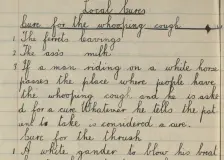 Local Cures
Cure for the whooping cough
1. The ferrets leavings
2. The ass's milk
3. If a man riding on a white horse
passes the place where people have
the whooping cough and he is aske
d for a cure Whatever he tells the pat
ient to take is considered a cure.
Cure for the thrush
1. A white gander to blow his breat